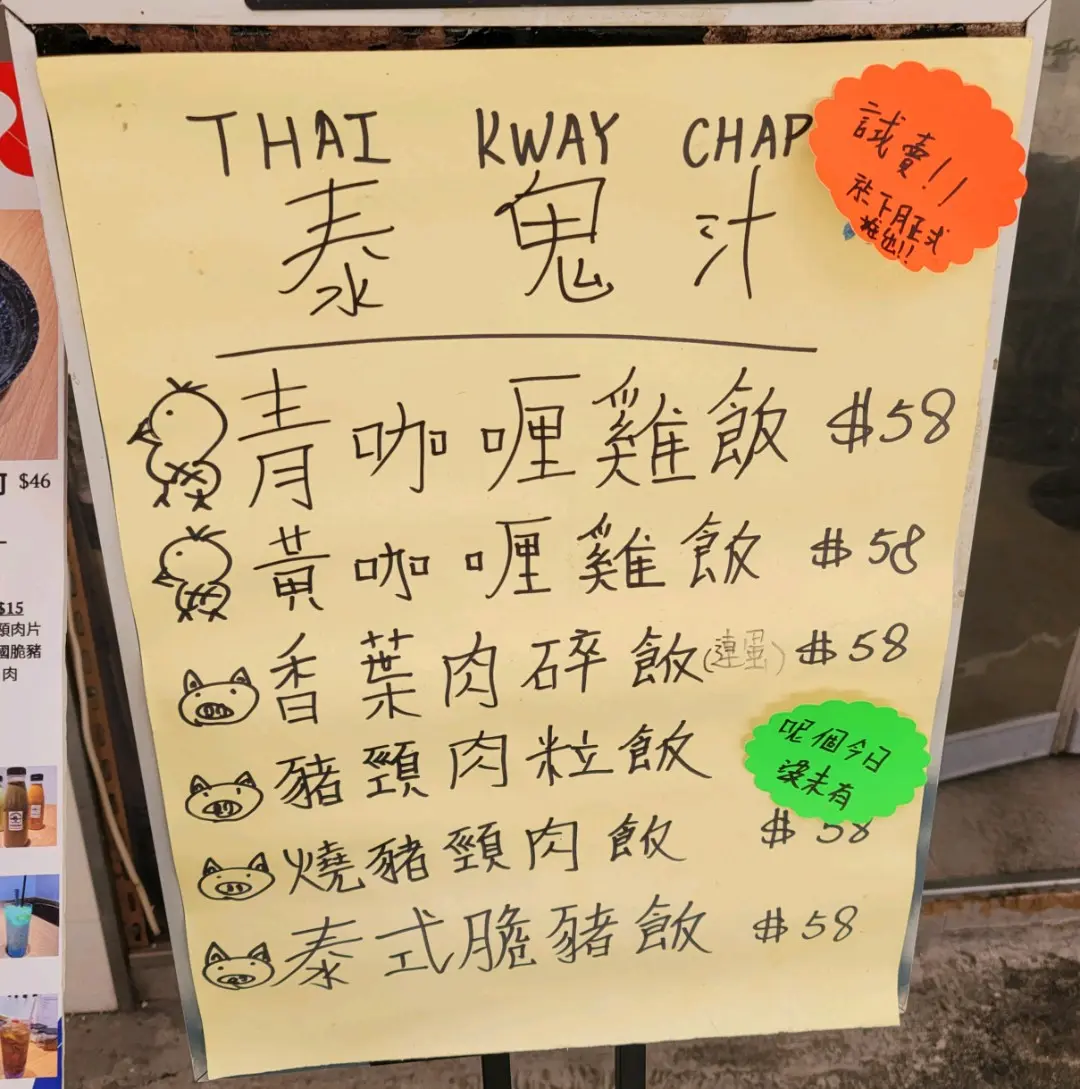 THAI KWAY CHAP
泰鬼汁
試賣!!
於下月正式
推出!!
青咖喱雞飯 $58
黃咖喱雞飯 $58
香葉肉碎飯(連蛋) $58
豬頸肉粒飯
呢個今日
未有
燒豬頸肉飯 $58
泰式脆豬飯 $58
$46
$15
頸肉片
國脆豬
肉